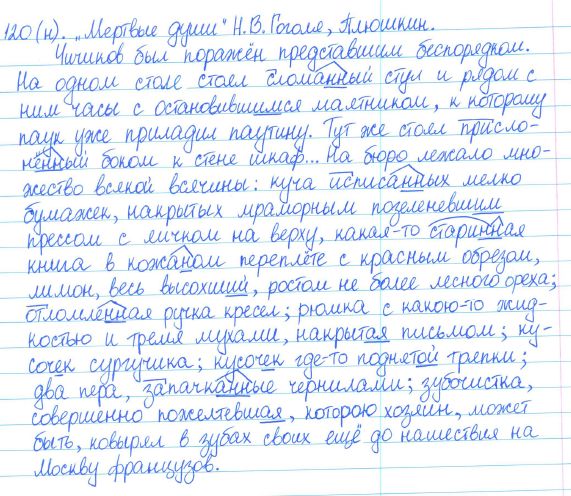 120(н). „Мертвые души" Н.В. Гоголя, Плюшкин.
Чичиков был поражён представшим беспорядком.
На одном столе стоял сломанный стул и рядом с
ним часы с остановившимся маятником, к которому
паук уже приладил паутину. Тут же стоял присло-
нённый боком к стене шкаф... На бюро лежало мно-
жество всякой всячины: куча исписанных мелко
бумажек, накрытых мраморным позеленевшим
прессом с яичком на верху, какая-то старинная
книга в кожаном переплёте с красным обрезом,
лимон, весь высохший, ростом не более лесного ореха;
отломлённая ручка кресел; рюмка с какою-то жид-
костью и тремя мухами, накрытая письмом; ку-
сочек сургучика; кусочек где-то поднятой тряпки;
два пера, запачканные чернилами; зубочистка,
совершенно пожелтевшая, которою хозяин, может
быть, ковырял в зубах своих ещё до нашествия на
Москву французов.